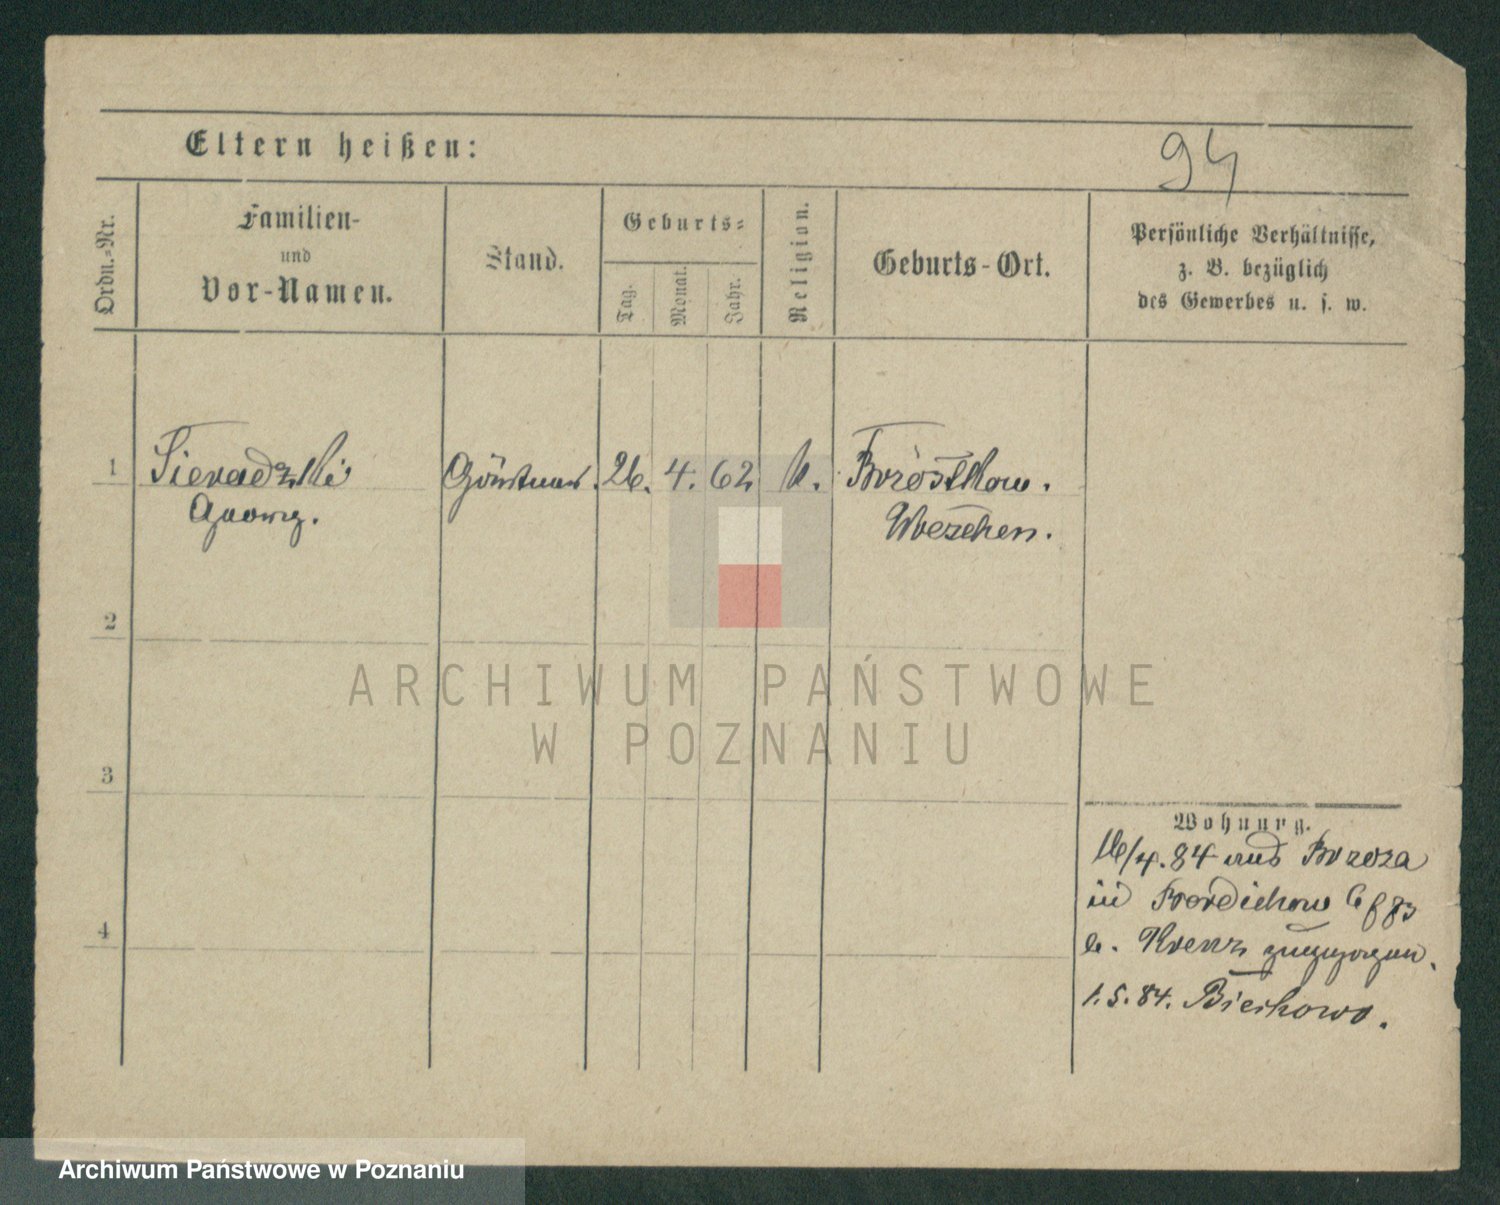 94
Eltern heißen:
Ordn.-Nr.
Familien-
und
Vor-Namen.
Stand.
Geburts-
Tag.
Monat.
Jahr.
Religion.
Geburts-Ort.
Persönliche Verhältnisse,
z. B. bezüglich
des Gewerbes u. s. w.
1
Sieradzki
Georg.
Gärtner.
26.
4.
62
k.
Wreschen.
2
ARCHIWUM PAŃSTWOWE
W POZNANIU
3
Wohnung.
16/4. 84 aus Brzoza
in
b. Krenz zugezogen.
1.5.84.
4
Archiwum Państwowe w Poznaniu